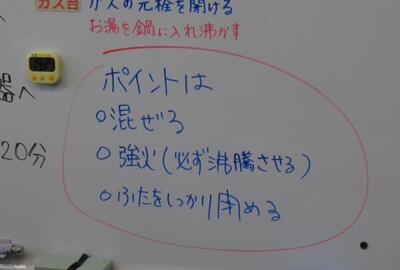 ガス台
ガスの元栓を開ける
お湯を鍋に入れ沸かす
器へ
20分
ポイントは
○混ぜる
○強火(必ず沸騰させる)
○ふたをしっかり閉める